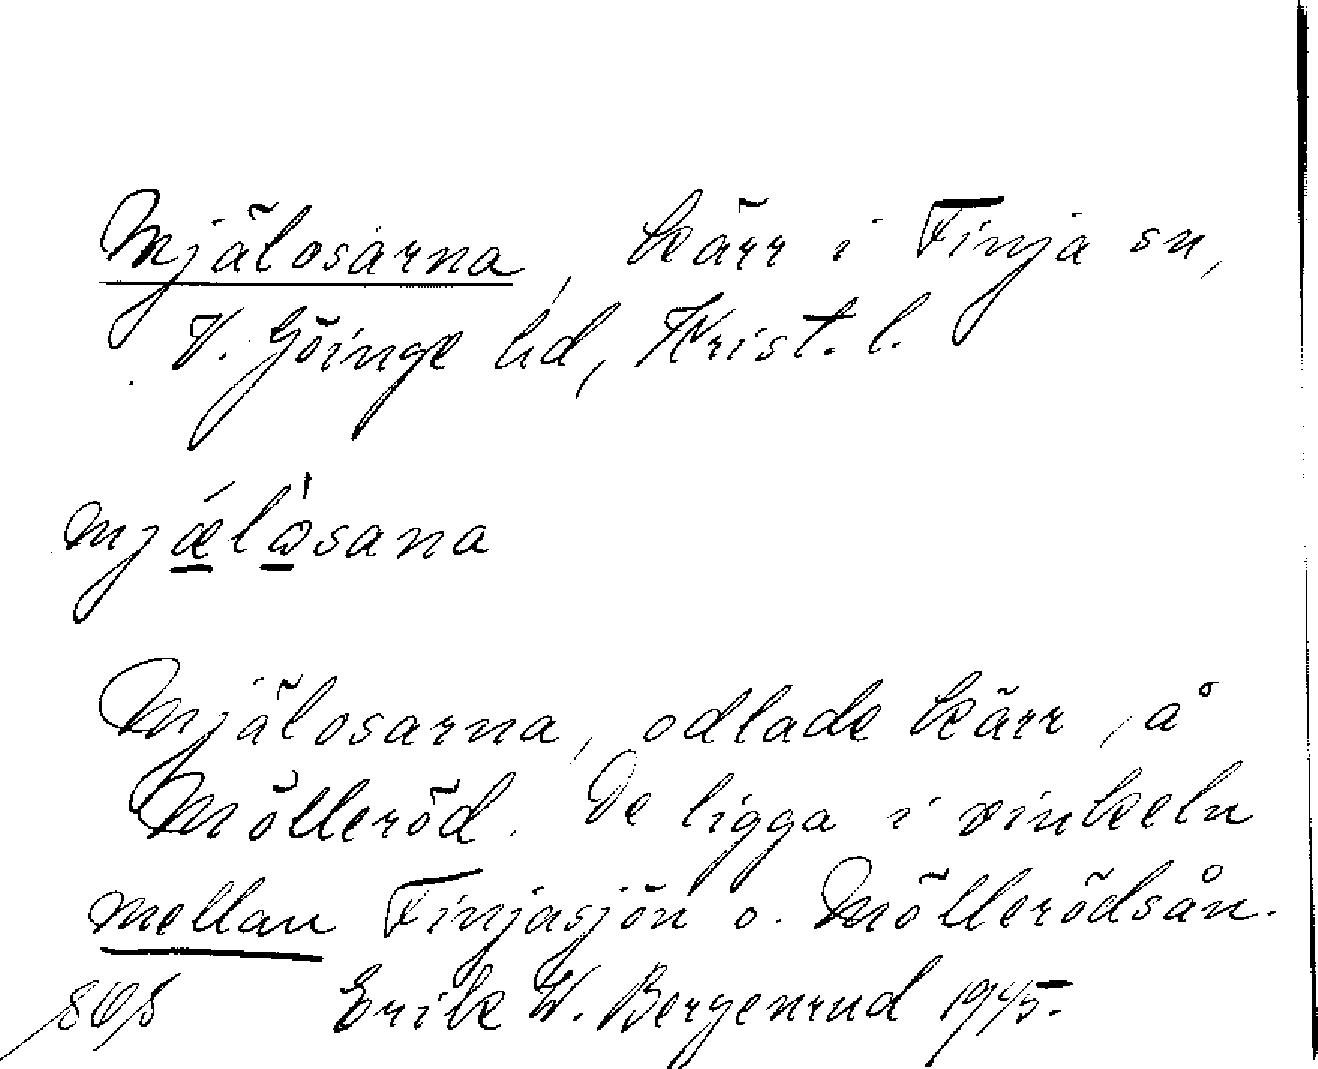 Mjälosarna, kärr i Finja sn,
V. Göinge hd, Krist. l.
mjǽ̲lɷ̲̍sana
Mjälosarna, odlade kärr, å
Mölleröd. De ligga i vinkeln
mellan Finjasjön o. Möllerödsån.
Erik W. Bergenrud 1945.